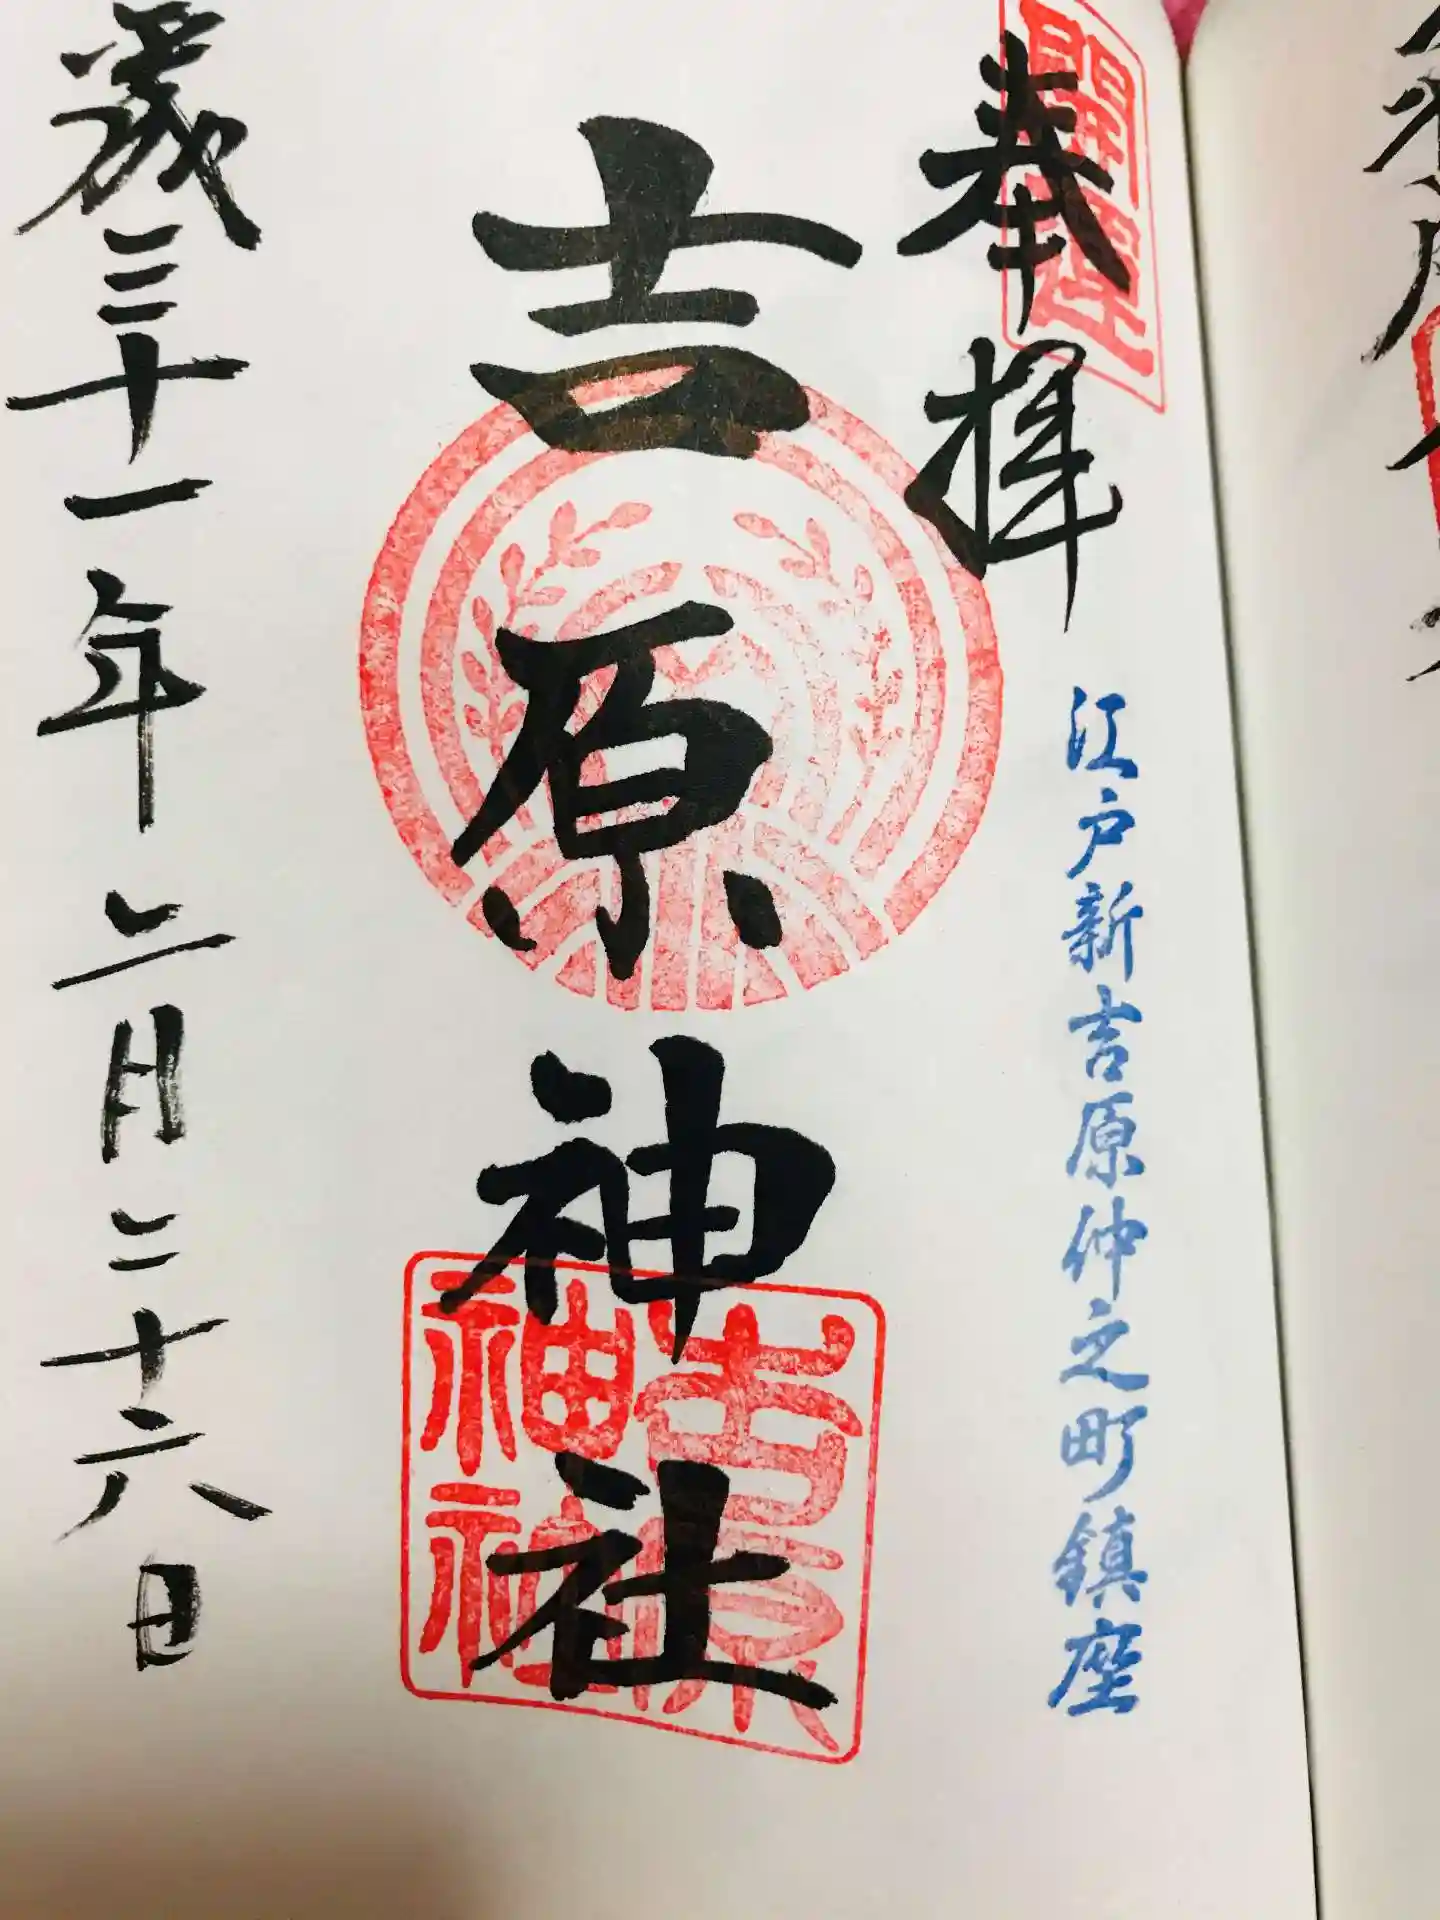 開運
奉拝
江戸新吉原仲之町鎮座
吉原神社
吉原
神社
歳三十一年二月二十六日